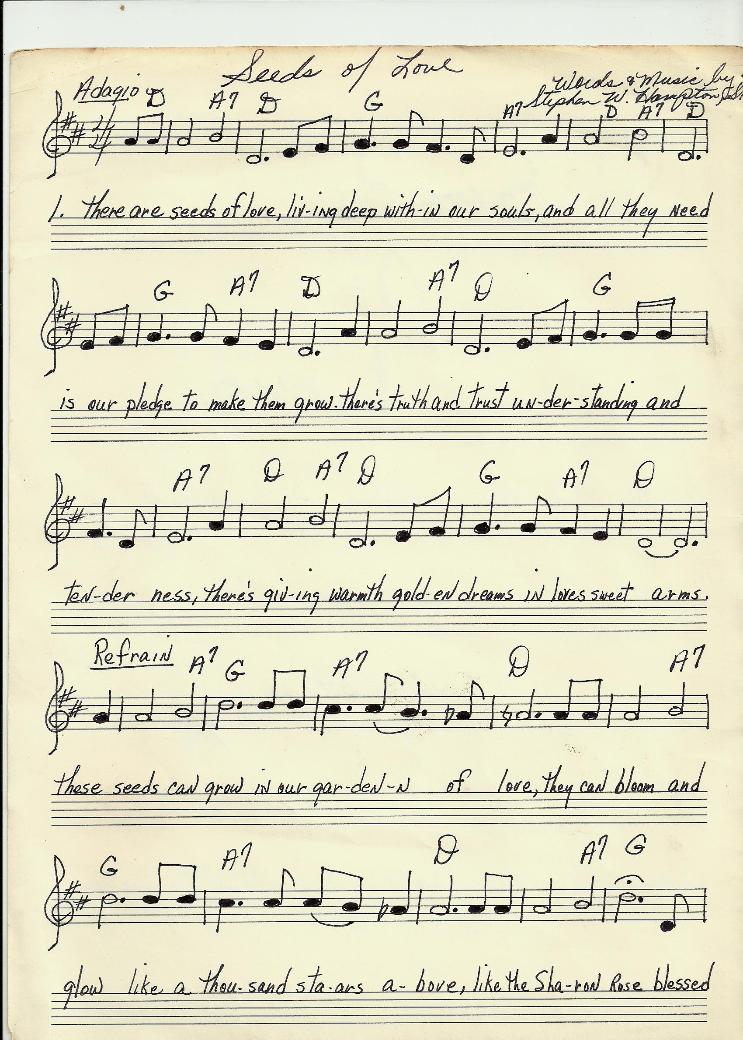 Seeds of Love
Adagio
Words & Music by
Stephen W. Hampton
D A7 D G A7 D A7 D
1. There are seeds of love, liv-ing deep with-in our souls, and all they need
G A7 D A7 D G
is our pledge to make them grow. there's truth and trust un-der-standing and
A7 D A7 D G A7 D
ten-der ness, there's giv-ing warmth gold-en dreams in loves sweet arms.
Refrain
A7 G A7 D A7
these seeds can grow in our gar-den-n of love, they can bloom and
G A7 D A7 G
glow like a thou-sand sta-ars a-bove, like the Sha-ron Rose blessed